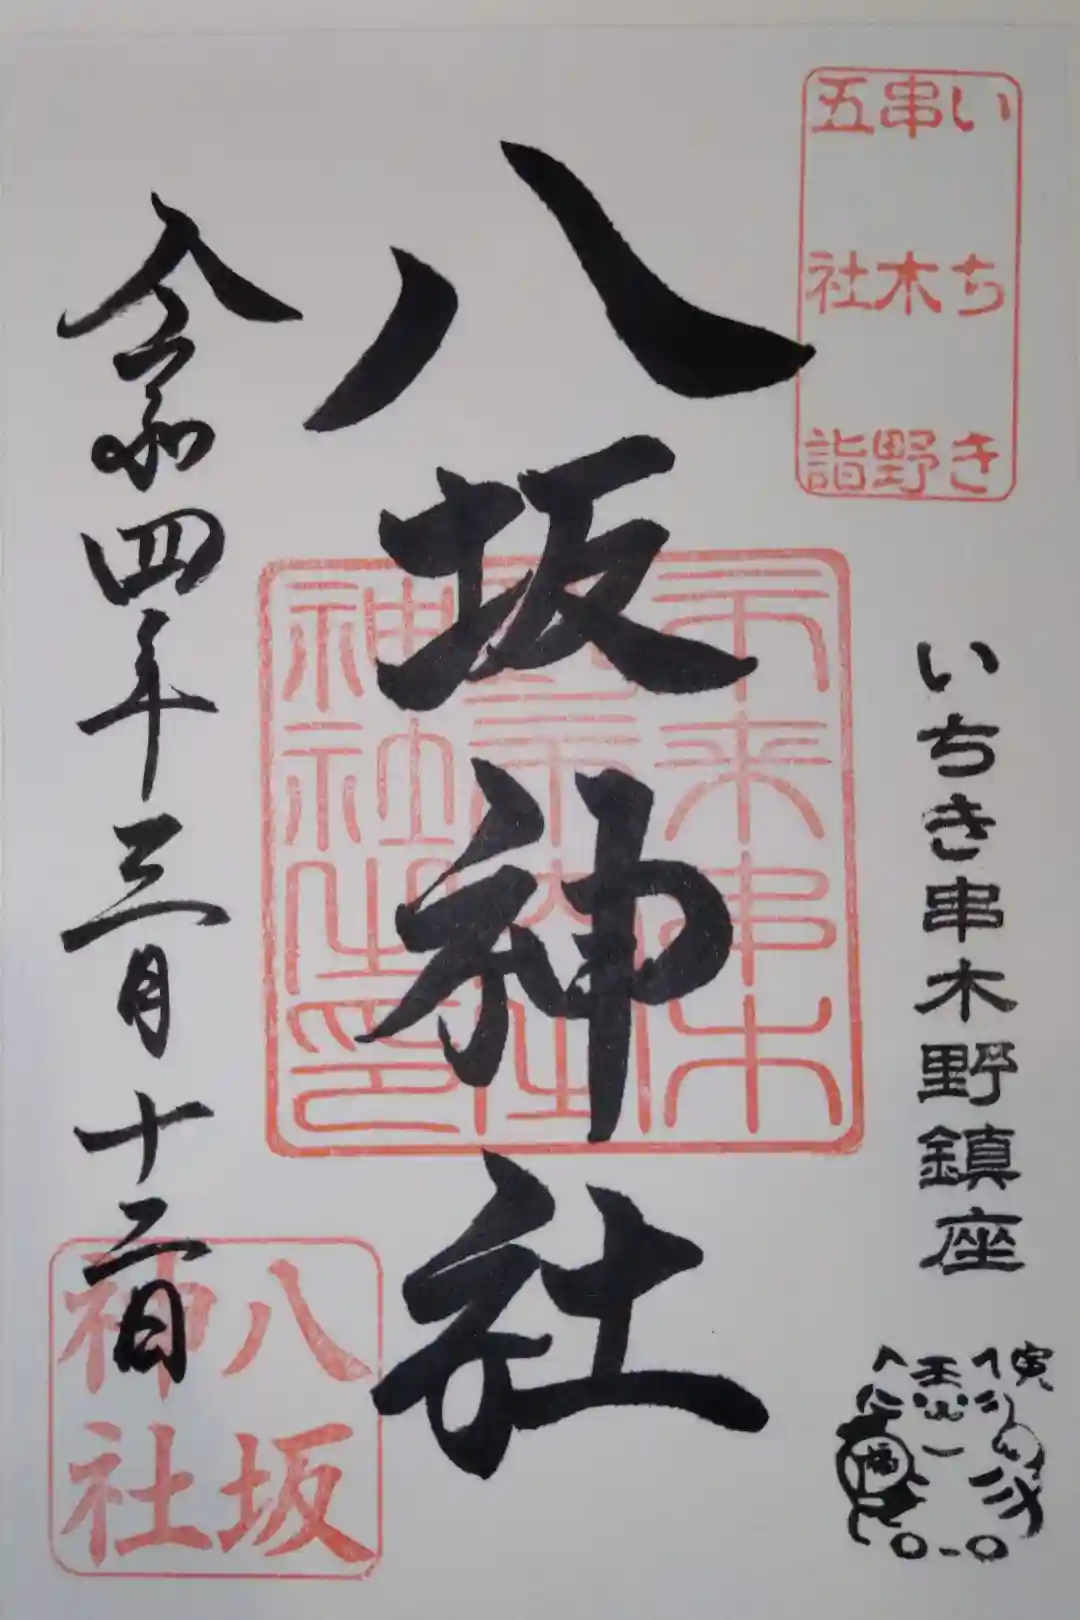 いちき
串木野
五社詣
いちき串木野鎮座
寅
八坂神社
八坂
神社
令和四年三月十二日